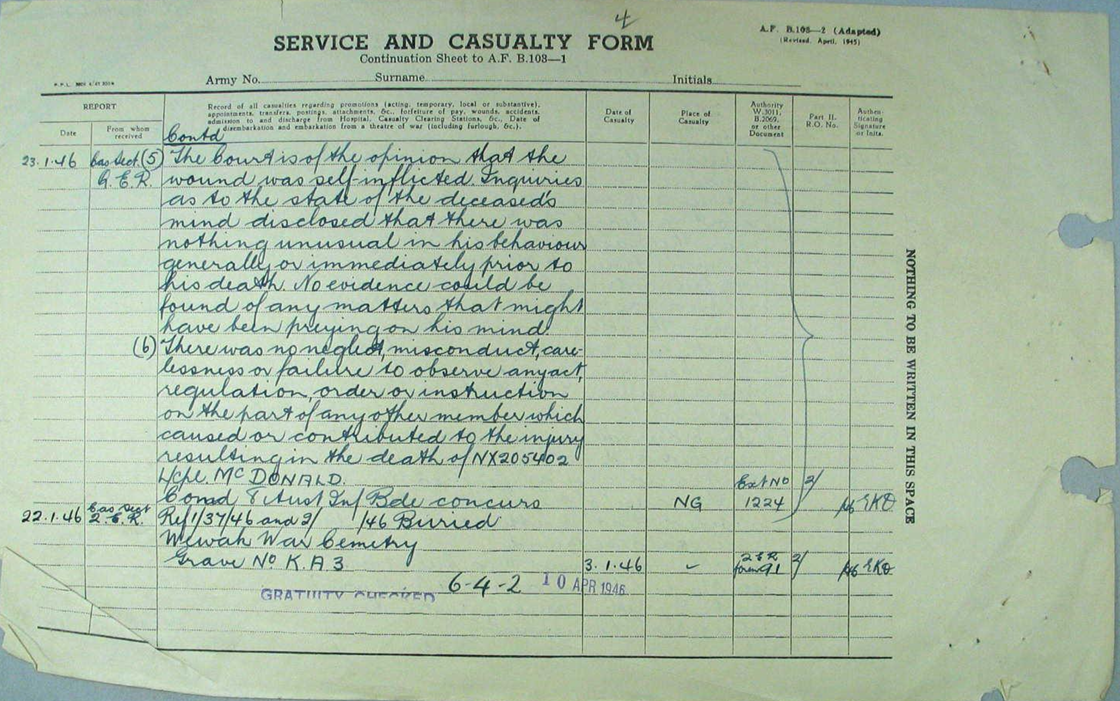 4
SERVICE AND CASUALTY FORM
Continuation Sheet to A.F. B.103—1
A.F. B.103—2 (Adapted)
(Revised, April, 1945)
Army No. Surname Initials
REPORT
Date
From whom received
Record of all casualties regarding promotions (acting, temporary, local or substantive),
appointments, transfers, postings, attachments, &c., forfeiture of pay, wounds, accidents,
admission to and discharge from Hospital, Casualty Clearing Stations, &c., Date of
disembarkation and embarkation from a theatre of war (including furlough, &c.).
Date of Casualty
Place of Casualty
Authority W.3011, B.2069, or other Document
Part II. R.O. No.
Authenticating Signature or Inits.
Contd
23.1.46 Cas Sect (5) The Court is of the opinion that the
wound was self-inflicted. Inquiries
as to the state of the deceased's
mind disclosed that there was
nothing unusual in his behaviour
generally or immediately prior to
his death. No evidence could be
found of any matters that might
have been preying on his mind.
(6) There was no neglect, misconduct, care-
lessness or failure to observe any act,
regulation, order or instruction
on the part of any other member which
caused or contributed to the injury
resulting in the death of NX205402
L/cpl. McDONALD.
Comd 8 Aust Inf Bde concurs NG Ext No 1224 2/
22.1.46 Cas Sect 2 E.R. Ref 1/37/46 and 2/ /46 Buried
Wewak War Cemetry
Grave No K.A 3 3.1.46 91 2/
6-4-2 10 APR 1946
GRATUITY CHECKED
NOTHING TO BE WRITTEN IN THIS SPACE